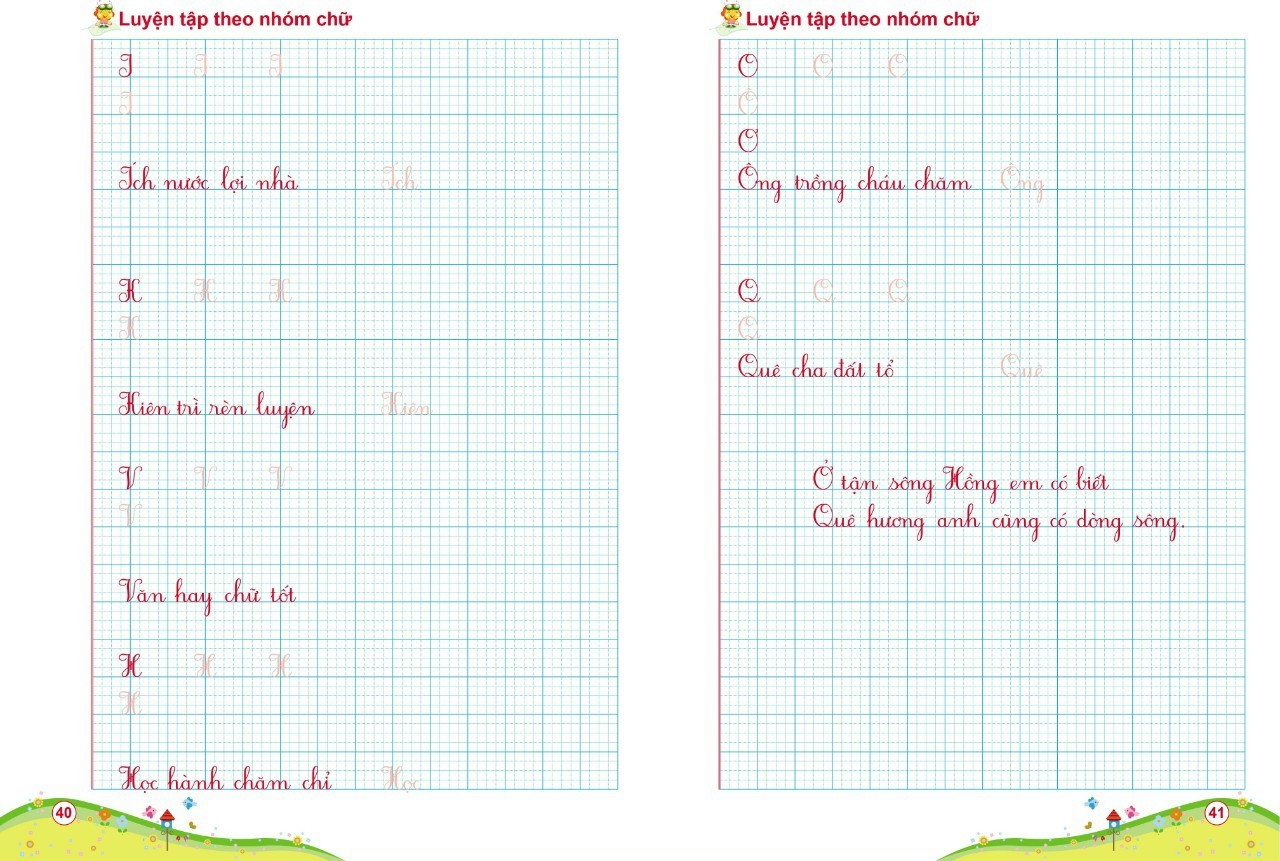 Luyện tập theo nhóm chữ
I I I
I
Ích nước lợi nhà Ích
K K K
K
Kiên trì rèn luyện Kiên
V V V
V
Văn hay chữ tốt
H H H
H
Học hành chăm chỉ Học
40
Luyện tập theo nhóm chữ
O O O
Ô
Ơ
Ông trồng cháu chăm Ông
Q Q Q
Q
Quê cha đất tổ Quê
Ở tận sông Hồng em có biết
Quê hương anh cũng có dòng sông.
41